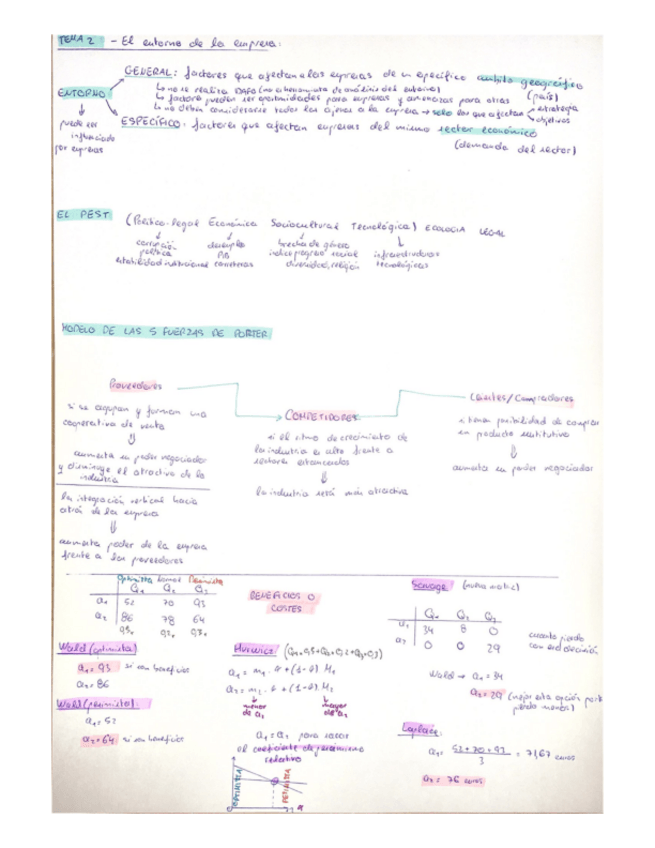 TEMA 2 - El entorno de la empresa:
GENERAL: factores que afectan a las empresas de un específico ámbito geográfico
(país)
ENTORNO
↳ no se realiza DAFO (no a herramienta de análisis del entorno)
↳ factores pueden ser oportunidades para empresas y amenazas para otras
↳ no deben considerarse todos los ajenos a la empresa → solo los que afectan estrategia
objetivos
puede ser
influenciado
por empresas
ESPECÍFICO: factores que afectan empresas del mismo sector económico
(demanda del sector)
EL PEST (Político-legal Económica Sociocultural Tecnológica) ECOLOGIA LEGAL
corrupción desempleo brecha de género infraestructuras
política PIB índice progreso social tecnológicas
estabilidad institucional carreteras diversidad, religión
MODELO DE LAS 5 FUERZAS DE PORTER
Proveedores
COMPETIDORES
Clientes/Compradores
si se agrupan y forman una
cooperativa de venta
⇓
aumenta su poder negociador
y disminuye el atractivo de la
industria
la integración vertical hacia
atrás de la empresa
⇓
aumenta poder de la empresa
frente a los proveedores
si el ritmo de crecimiento de
la industria es alto frente a
sectores estancados
⇓
la industria será más atractiva
si tienen posibilidad de comprar
un producto sustitutivo
⇓
aumenta su poder negociador
Optimista Pesimista
Q₁ Q₂ Q₃
a₁ 52 70 93
a₂ 86 78 64
BENEFICIOS O
COSTES
Savage (nueva matriz)
Q₁ Q₂ Q₃
a₁ 34 8 0
a₂ 0 0 29
cuanto pierdo
con esa decisión
Wald → a₁ = 34
a₂ = 29 (mejor esta opción
pierdo menos)
Wald (optimista)
a₁ = 93 si son beneficios
a₂ = 86
Wald (pesimista):
a₁ = 52
a₂ = 64 si son beneficios
Hurwicz
menor
de a₂
mayor
de a₂
a₁ = a₂ para sacar
el coeficiente de pesimismo
relativo
OPTIMISTA
PESIMISTA
Laplace:
a₁ = 52 + 70 + 93
3
= 71,67 euros
a₂ = 76 euros